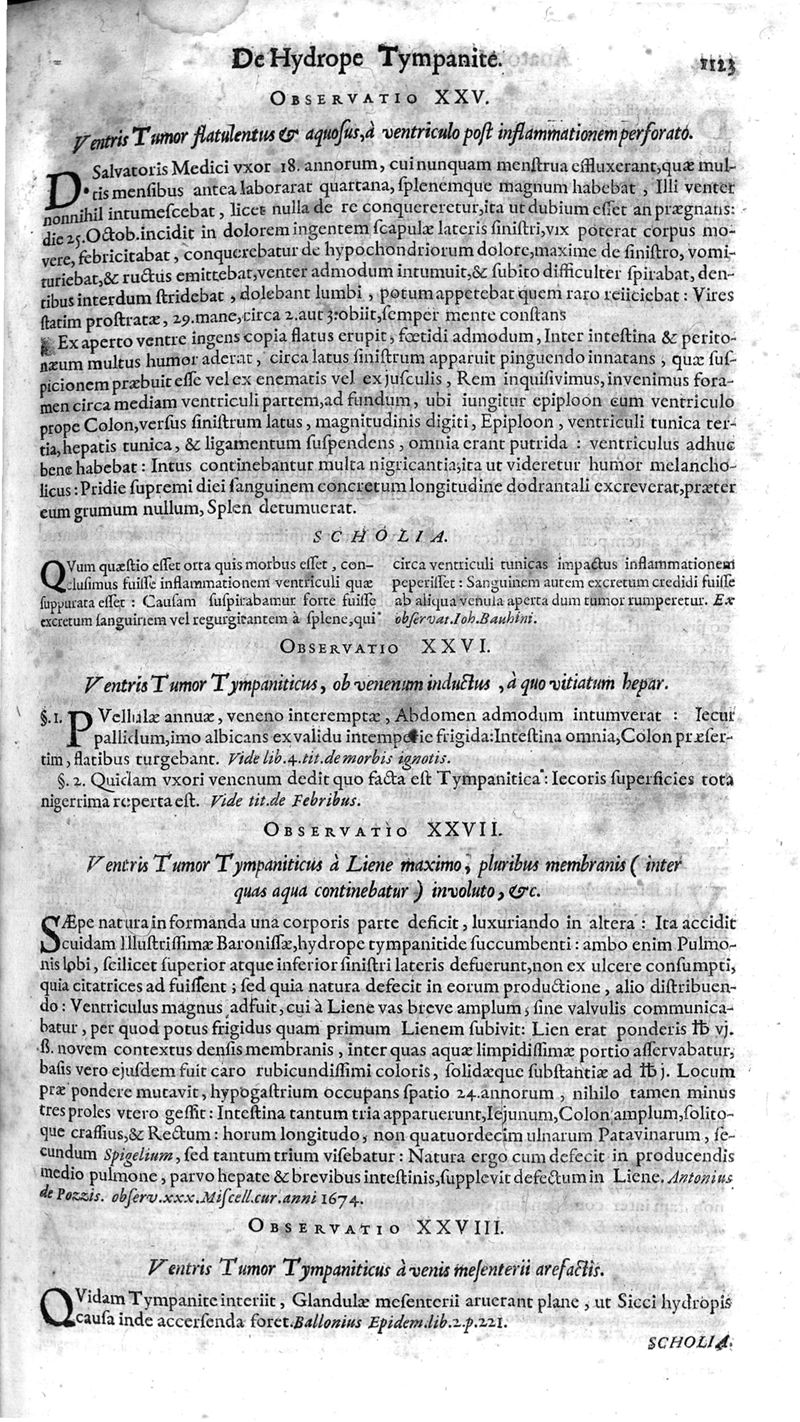 De Hydrope Tympanite.
1123
OBSERVATIO XXV.
Ventris Tumor flatulentus & aquosus, à ventriculo post inflammationem perforato.
D. Salvatoris Medici vxor 18. annorum, cui nunquam menſtrua effluxerant, quæ mul-
tis menſibus antea laborarat quartana, ſplenemque magnum habebat, Illi venter
nonnihil intumeſcebat, licet nulla de re conquereretur, ita ut dubium eſſet an prægnans:
die 25. Octob. incidit in dolorem ingentem ſcapulæ lateris ſiniſtri, vix poterat corpus mo-
vere, febricitabat, conquerebatur de hypochondriorum dolore, maxime de ſiniſtro, vomi-
turiebat, & ructus emittebat, venter admodum intumuit, & ſubito difficulter ſpirabat, den-
tibus interdum ſtridebat, dolebant lumbi, potum appetebat quem raro reiiciebat: Vires
ſtatim proſtratæ, 29. mane, circa 2. aut 3. obiit, ſemper mente conſtans
Ex aperto ventre ingens copia flatus erupit, fœtidi admodum, Inter inteſtina & perito-
næum multus humor aderat, circa latus ſiniſtrum apparuit pinguendo innatans, quæ ſuſ-
picionem præbuit eſſe vel ex enematis vel ex juſculis, Rem inquiſivimus, invenimus fora-
men circa mediam ventriculi partem, ad fundum, ubi iungitur epiploon cum ventriculo
prope Colon, verſus ſiniſtrum latus, magnitudinis digiti, Epiploon, ventriculi tunica ter-
tia, hepatis tunica, & ligamentum ſuſpendens, omnia erant putrida: ventriculus adhuc
bene habebat: Intus continebantur multa nigricantia, ita ut videretur humor melancho-
licus: Pridie ſupremi diei ſanguinem concretum longitudine dodrantali excreverat, præter
eum grumum nullum, Splen detumuerat.
SCHOLIA.
QVum quæſtio eſſet orta quis morbus eſſet, con-
cluſimus fuiſſe inflammationem ventriculi quæ
ſuppurata eſſet: Cauſam ſuſpirabamur forte fuiſſe
excretum ſanguinem vel regurgitantem à ſplene, qui
circa ventriculi tunicas impactus inflammationem
peperiſſet: Sanguinem autem excretum credidi fuiſſe
ab aliqua venula aperta dum tumor rumperetur. Ex
obſervat. Ioh. Bauhini.
OBSERVATIO XXVI.
Ventris Tumor Tympaniticus, ob venenum inductus, à quo vitiatum hepar.
§. 1. PVellulæ annuæ, veneno interemptæ, Abdomen admodum intumverat: Iecur
pallidum, imo albicans ex validu intemperie frigida: Inteſtina omnia, Colon præſer-
tim, flatibus turgebant. Vide lib. 4. tit. de morbis ignotis.
§. 2. Quidam vxori venenum dedit quo facta eſt Tympanitica: Iecoris ſuperficies tota
nigerrima reperta eſt. Vide tit. de Febribus.
OBSERVATIO XXVII.
Ventris Tumor Tympaniticus à Liene maximo, pluribus membranis (inter
quas aqua continebatur) involuto, &c.
SÆpe natura in formanda una corporis parte deficit, luxuriando in altera: Ita accidit
cuidam Illuſtriſſimæ Baroniſſæ, hydrope tympanitide ſuccumbenti: ambo enim Pulmo-
nis lobi, ſcilicet ſuperior atque inferior ſiniſtri lateris defuerunt, non ex ulcere conſumpti,
quia citatrices ad fuiſſent; ſed quia natura defecit in eorum productione, alio diſtribuen-
do: Ventriculus magnus adfuit, cui à Liene vas breve amplum, ſine valvulis communica-
batur, per quod potus frigidus quam primum Lienem ſubivit: Lien erat ponderis ℔ vj.
ß. novem contextus denſis membranis, inter quas aquæ limpidiſſimæ portio aſſervabatur,
baſis vero ejuſdem fuit caro rubicundiſſimi coloris, ſolidæque ſubſtantiæ ad ℔ j. Locum
præ pondere mutavit, hypogaſtrium occupans ſpatio 24. annorum, nihilo tamen minus
tres proles vtero geſſit: Inteſtina tantum tria apparuerunt, Iejunum, Colon amplum, ſolito-
que craſſius, & Rectum: horum longitudo, non quatuordecim ulnarum Patavinarum, ſe-
cundum Spigelium, ſed tantum trium viſebatur: Natura ergo cum defecit in producendis
medio pulmone, parvo hepate & brevibus inteſtinis, ſupplevit defectum in Liene. Antonius
de Pozzis. obſerv. xxx. Miſcell. cur. anni 1674.
OBSERVATIO XXVIII.
Ventris Tumor Tympaniticus à venis meſenterii arefactis.
QVidam Tympanite interiit, Glandulæ meſenterii aruerant plane, ut Sicci hydropis
cauſa inde accerſenda foret. Ballonius Epidem. lib. 2. p. 221.
SCHOLIA.